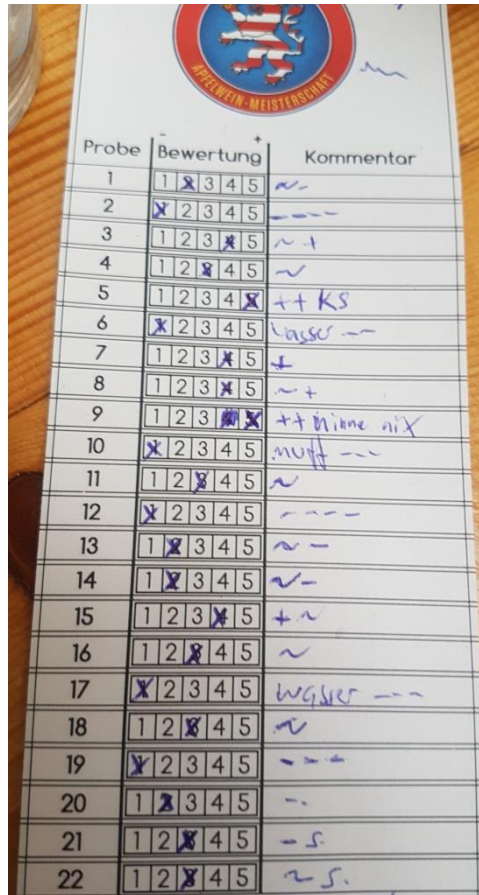 APFELWEIN-MEISTERSCHAFT
- +
Probe Bewertung Kommentar
1 1 2 3 4 5 ~-
2 1 2 3 4 5 ----
3 1 2 3 4 5 ~ +
4 1 2 3 4 5 ~
5 1 2 3 4 5 ++ KS
6 1 2 3 4 5 Wasser --
7 1 2 3 4 5 +
8 1 2 3 4 5 ~ +
9 1 2 3 4 5 ++ niX
10 1 2 3 4 5 muff ---
11 1 2 3 4 5 ~
12 1 2 3 4 5 ----
13 1 2 3 4 5 ~ -
14 1 2 3 4 5 ~-
15 1 2 3 4 5 + ~
16 1 2 3 4 5 ~
17 1 2 3 4 5 wasser ---
18 1 2 3 4 5 ~
19 1 2 3 4 5 ---
20 1 2 3 4 5 -.
21 1 2 3 4 5 - S.
22 1 2 3 4 5 ~ S.